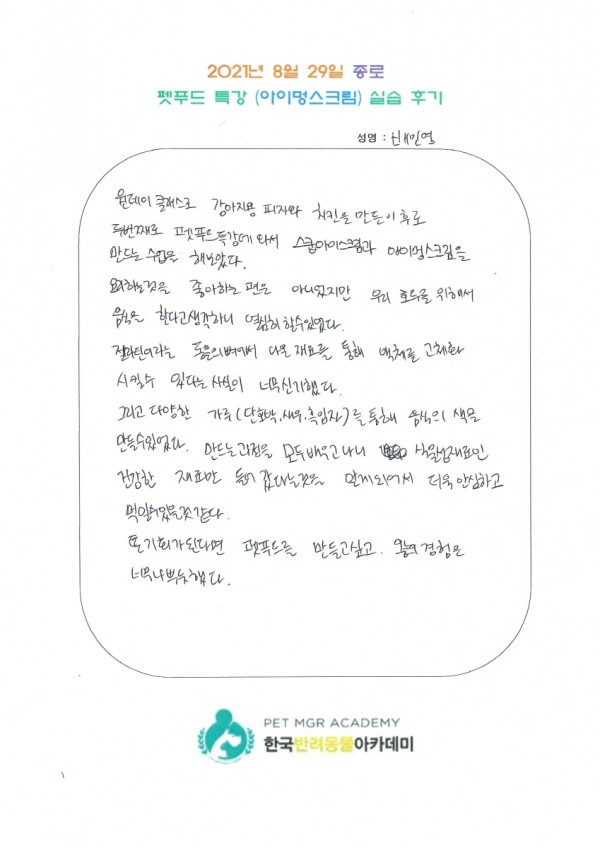 2021년 8월 29일 종로
펫푸드 특강 (아이멍스크림) 실습 후기
성명 :
원데이 클래스로 강아지용 피자와 치킨을 만든 이후로
두번째로 펫푸드특강에 와서 스쿱아이스크림과 아이멍스크림을
만드는 수업을 해보았다.
요리하는것을 좋아하는 편은 아니었지만 우리 호두를 위해서
음식을 한다고생각하니 열심히 할수있었다.
젤라틴이라는 동물의뼈에서 나온 재료를 통해 액체를 고체화
시킬수 있다는 사실이 너무신기했다.
그리고 다양한 가루(단호박,새우,흑임자)를 통해 음식의 색을
만들수있었다. 만드는과정을 모두배우고나니 식물성재료인
건강한 재료만 들어 갔다는것을 알게되어서 더욱 안심하고
먹일수있을것같다.
또 기회가된다면 펫푸드를 만들고싶고. 오늘의 경험은
너무나뿌듯했다.
PET MGR ACADEMY
한국반려동물아카데미